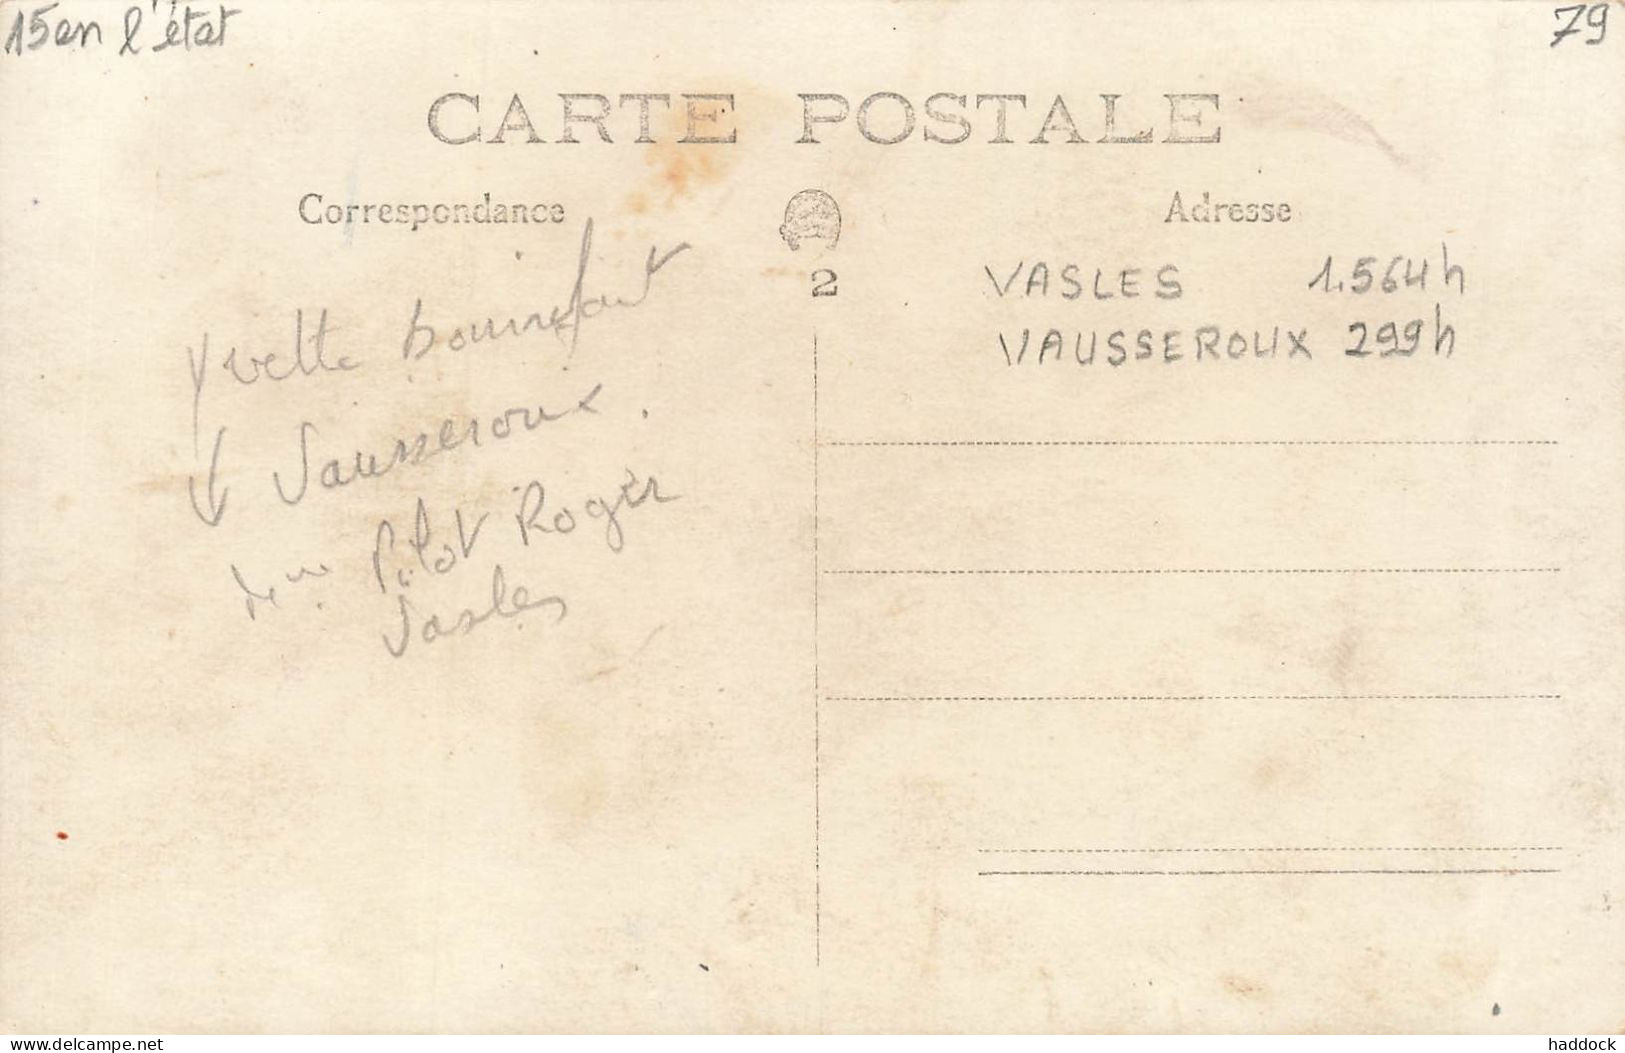 15 en l'état
79
CARTE POSTALE
Correspondance
Adresse
2
VASLES 1.564h
VAUSSEROUX 299h
Yvette Bonnefont
Vausseroux.
Pilot Roger
Vasles
www.delcampe.net
haddock